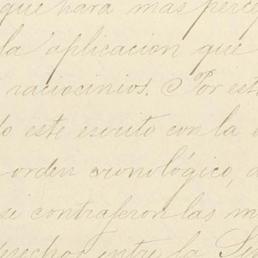 que hará mas percep
la aplicacion que
raciocinios. Por est
do este escrito con la
orden cronológico, a
si contrajeron las m
derechos entre la Su